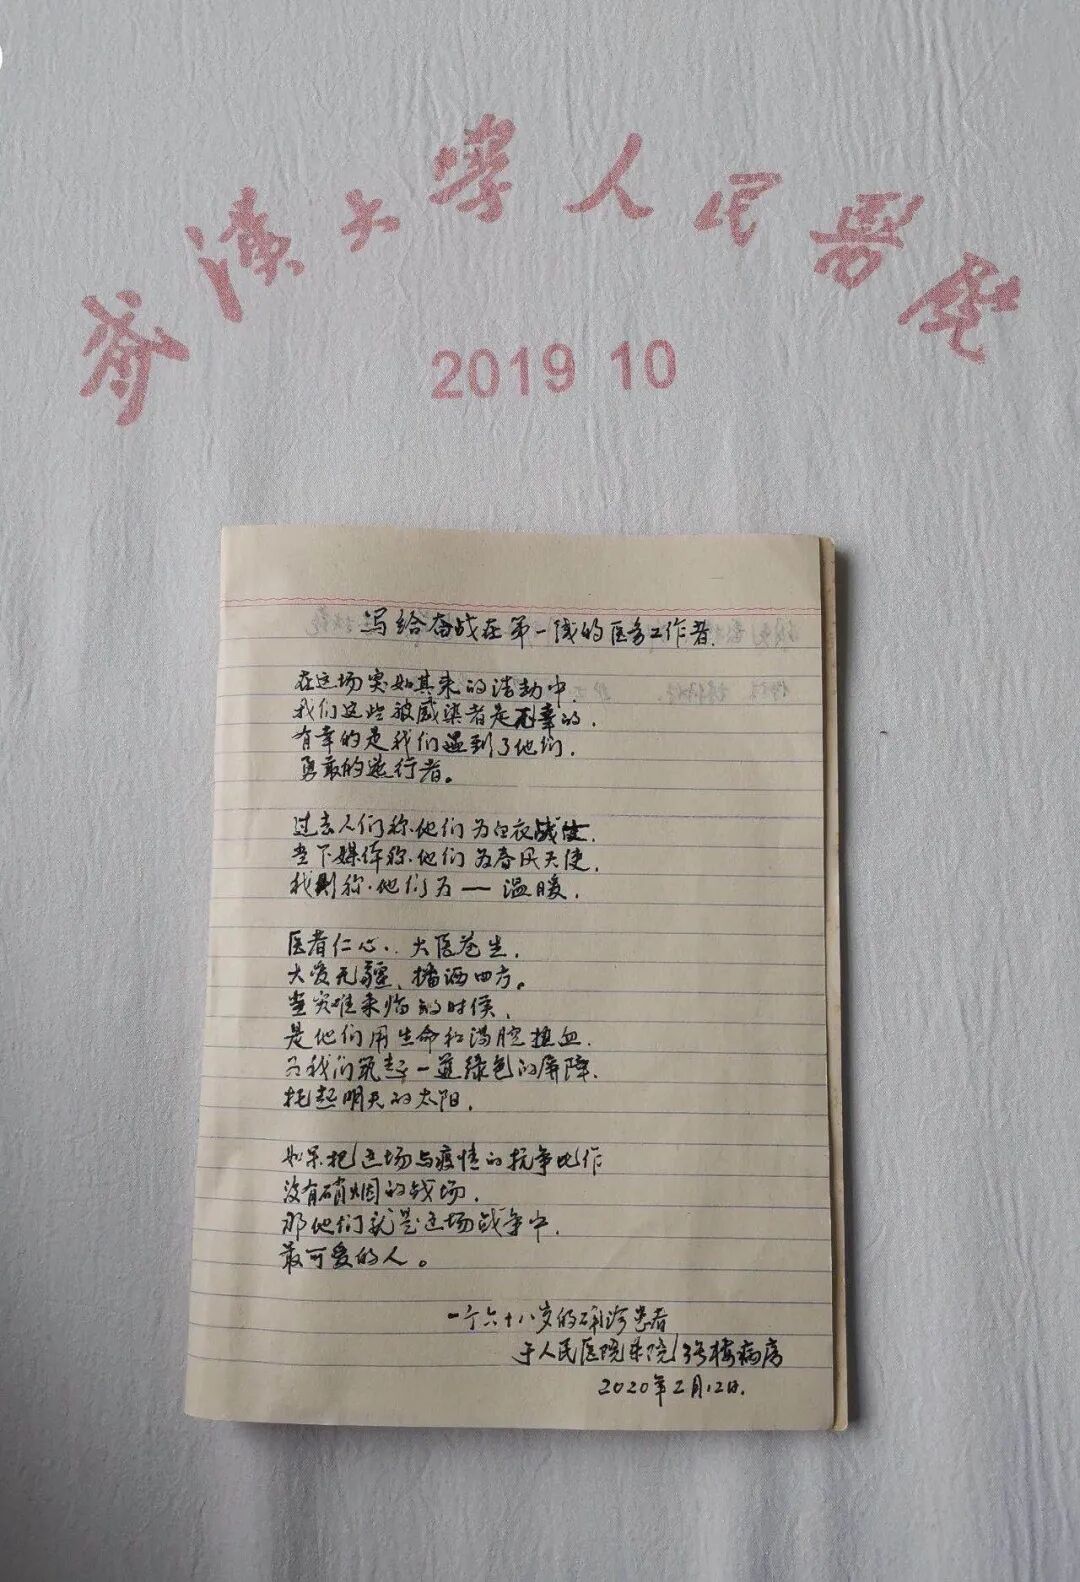 武漢大學人民醫院
2019 10
写给奋战在第一线的医务工作者.
在这场突如其来的浩劫中.
我们这些被感染者是不幸的.
有幸的是我们遇到了他们.
勇敢的逆行者。
过去人们称他们为白衣战士.
当下媒体称他们为春风天使.
我则称他们为——温暖.
医者仁心.大医苍生.
大爱无疆、播洒四方。
当灾难来临的时侯.
是他们用生命和满腔热血.
为我们筑起一道绿色的屏障.
托起明天的太阳.
如果把这场与疫情的抗争比作
没有硝烟的战场.
那他们就是这场战争中.
最可爱的人。
一个六十八岁的确诊患者
于人民医院东院13号楼病房
2020年2月12日.